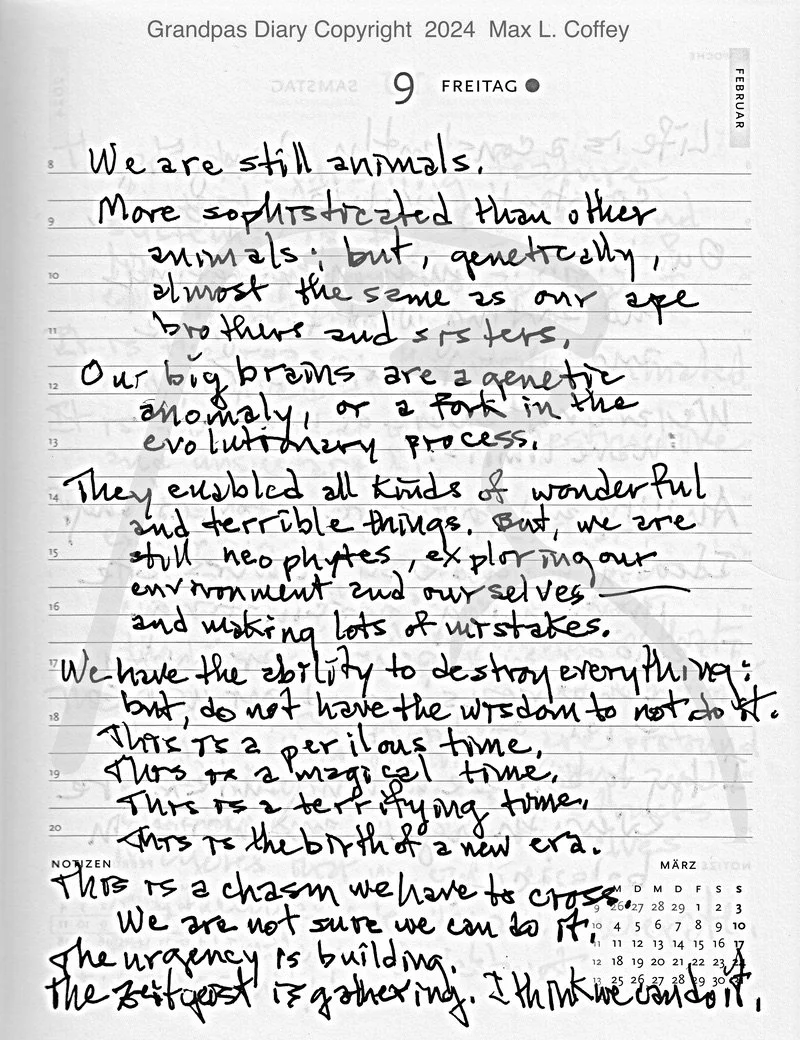 Grandpas Diary Copyright 2024 Max L. Coffey
9 FREITAG
FEBRUAR
8 We are still animals.
9 More sophisticated than other
animals; but, genetically,
10 almost the same as our ape
11 brothers and sisters.
12 Our big brains are a genetic
anomaly, or a fork in the
13 evolutionary process.
14 They enabled all kinds of wonderful
and terrible things. But, we are
15 still neophytes, exploring our
environment and ourselves —
16 and making lots of mistakes.
17 We have the ability to destroy everything:
18 but, do not have the wisdom to not do it.
This is a perilous time,
19 This is a magical time,
This is a terrifying time,
20 This is the birth of a new era.
NOTIZEN
This is a chasm we have to cross.
We are not sure we can do it.
The urgency is building.
The zeitgeist is gathering. I think we can do it.
MÄRZ
M D M D F S S
9 26 27 28 29 1 2 3
10 4 5 6 7 8 9 10
11 11 12 13 14 15 16 17
12 18 19 20 21 22 23
13 25 26 27 28 29 30